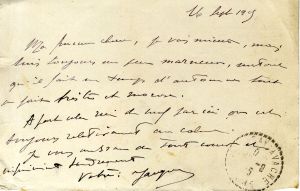 26 Sept 1915
Ma pauvre chère, je vais mieux, mais
suis toujours un peu, surtout
qu'il fait un temps d'automne tout
à fait triste et
A part cela rien de neuf par ici on est
toujours relativement au calme.
Je vous embrasse de tout cœur et
infiniment tendrement
Votre Jacques